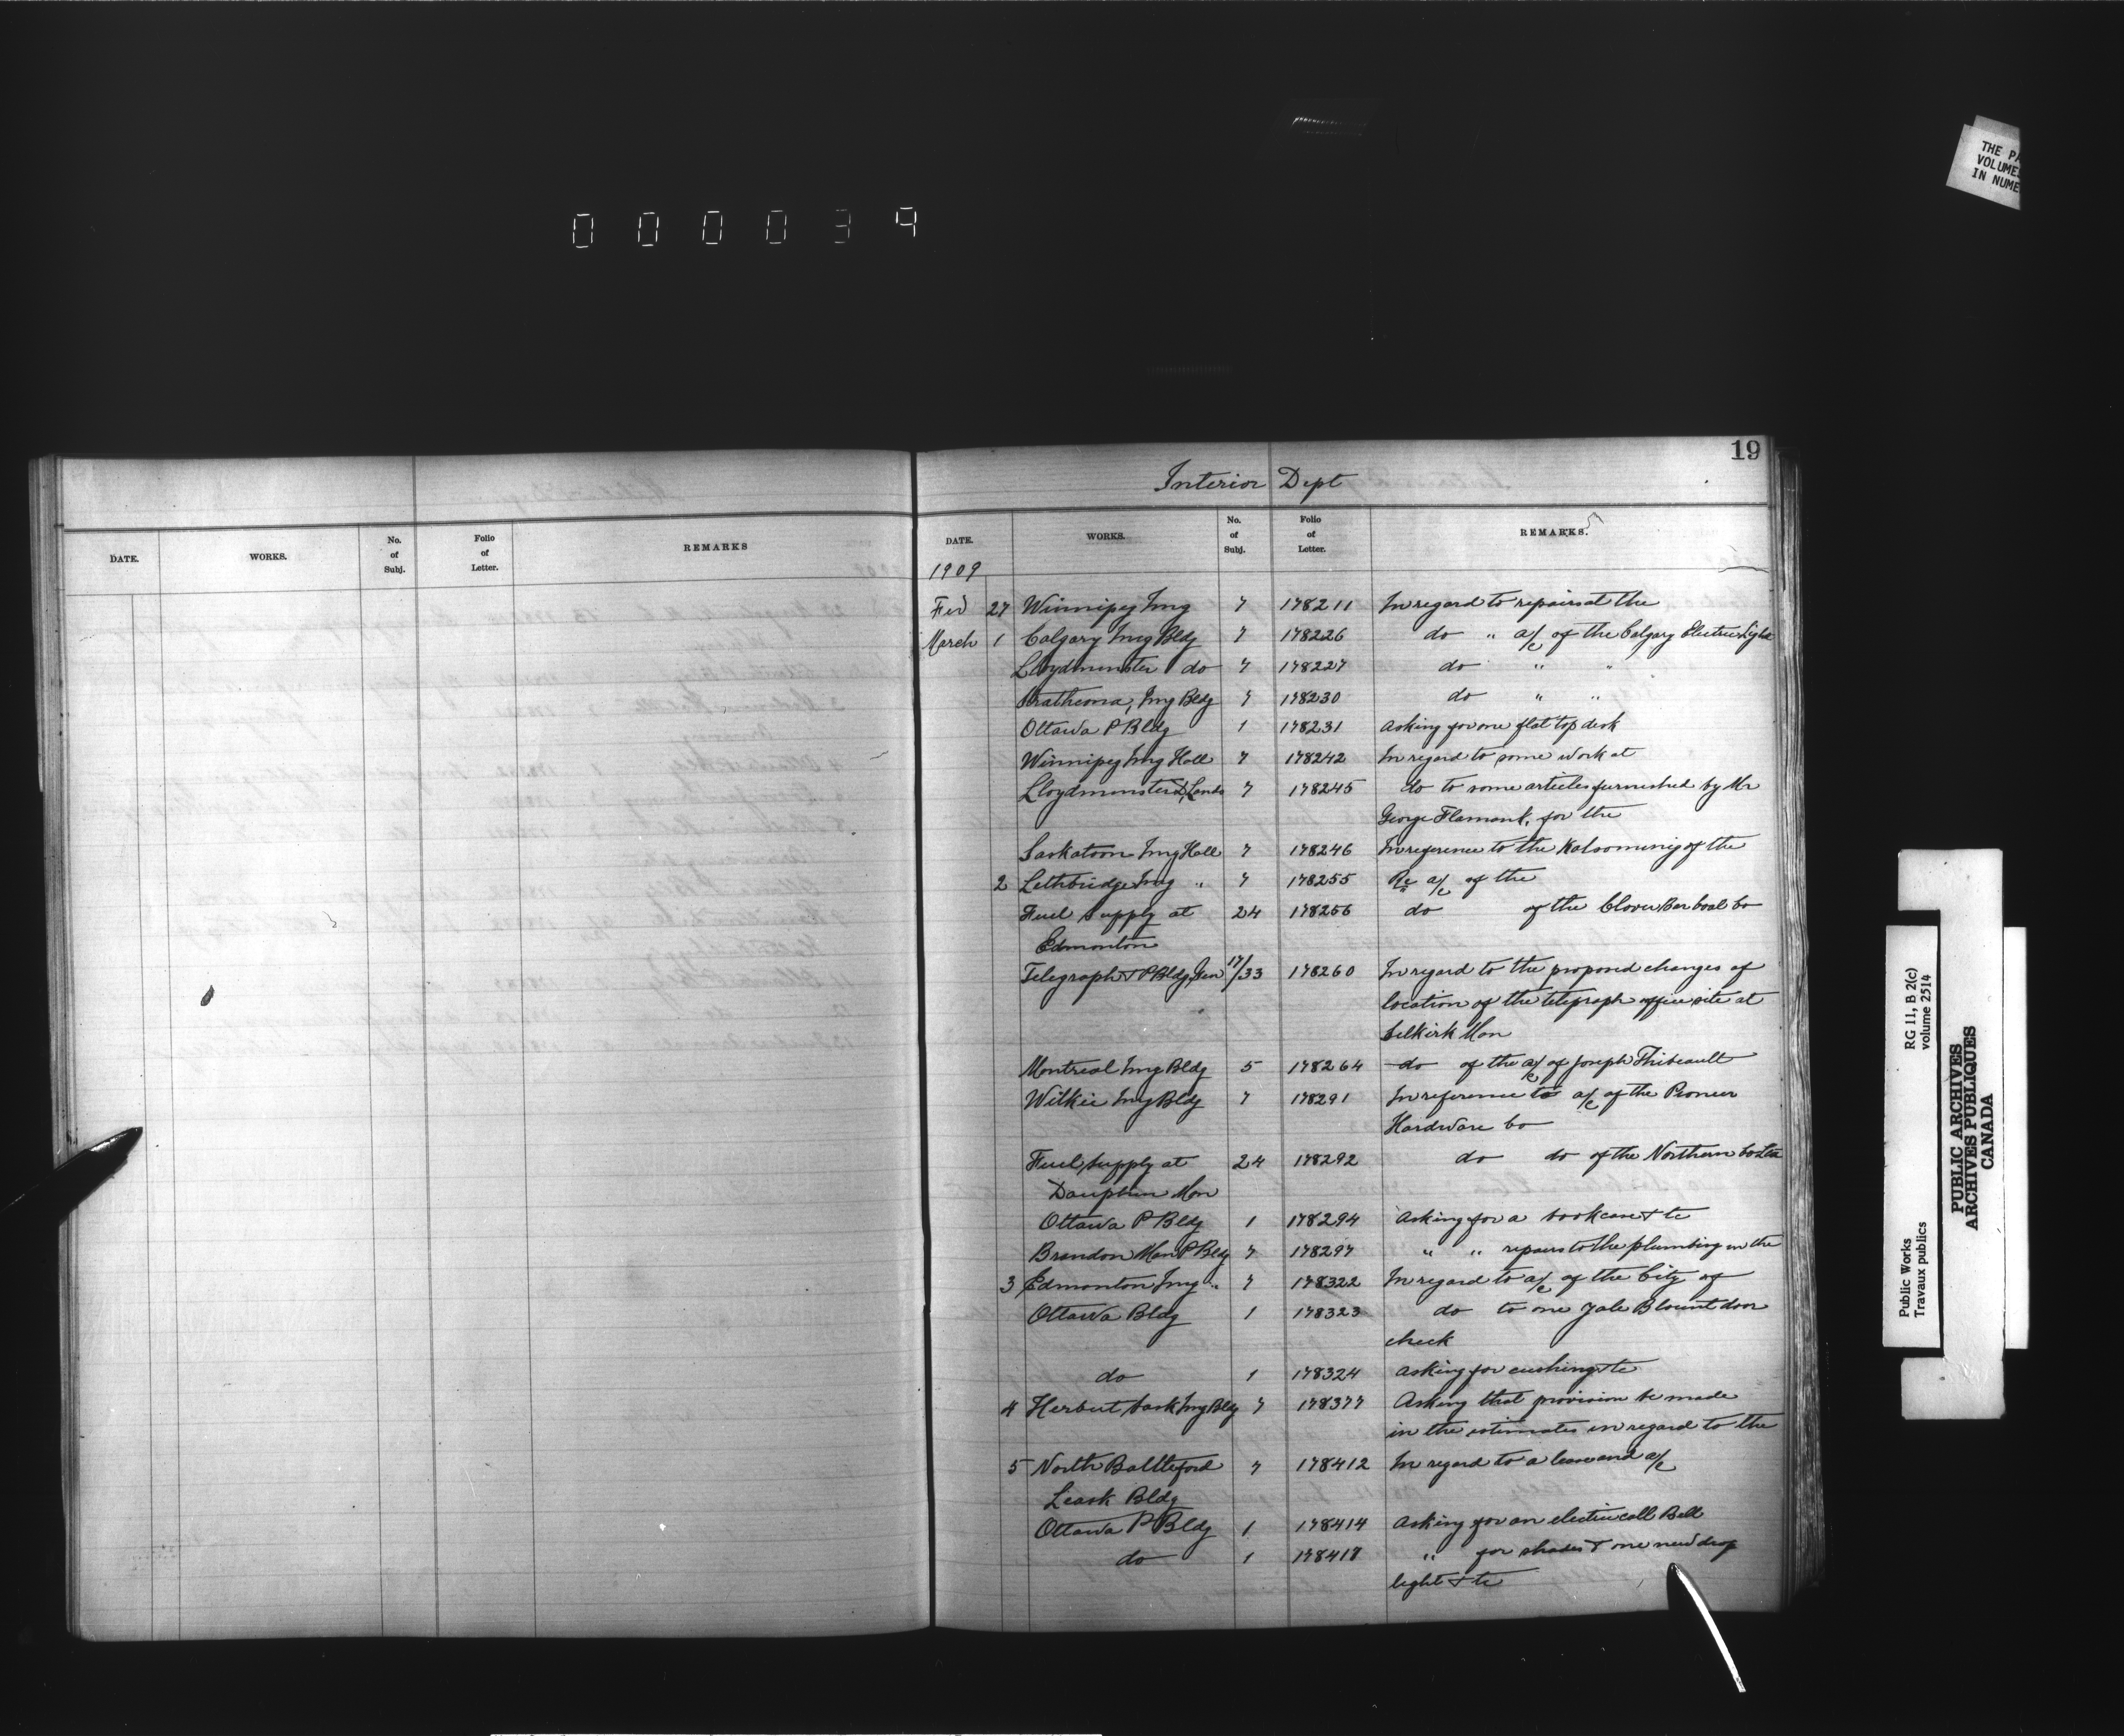 THE PA
VOLUME
IN NUME
000039
19
Interior Dept
DATE. WORKS. No. of Subj. Folio of Letter. REMARKS
DATE. WORKS. No. of Subj. Folio of Letter. REMARKS.
1909
Feb 27 Winnipeg Img 7 178211 In regard to repairs at the
March 1 Calgary Img Bldg 7 178226 do " a/c of the Calgary Electric Light
Lloydminster do 7 178227 do " "
Strathcona, Img Bldg 7 178230 do " "
Ottawa P Bldg 1 178231 Asking for one flat top desk
Winnipeg Img Hall 7 178242 In regard to some work at
Lloydminster D, Lands 7 178245 do to some articles furnished by Mr
George Flamank, for the
Saskatoon Img Hall 7 178246 In reference to the Kalsomining of the
2 Lethbridge Img " 7 178255 Re a/c of the
Fuel Supply at 24 178256 do of the Clover Bar Coal Co
Edmonton
Telegraph & P Bldg, Gen 17/33 178260 In regard to the proposed changes of
location of the telegraph office site at
Selkirk Man
Montreal Img Bldg 5 178264 do of the a/c of Joseph Thibeault
Wilkie Img Bldg 7 178291 In reference to a/c of the Pioneer
Hardware Co
Fuel, Supply at 24 178292 do do of the Northern Co
Dauphin Man
Ottawa P Bldg 1 178294 Asking for a bookcase & tc
Brandon Man P Bldg 7 178297 " " repairs to the plumbing in the
3 Edmonton Img " 7 178322 In regard to a/c of the City of
Ottawa Bldg 1 178323 do to one Yale Blount door
check
do 1 178324 Asking for cushing & tc
4 Herbert Sask Img Bldg 7 178377 Asking that provision be made
in the estimates in regard to the
5 North Battleford 7 178412 In regard to a lease and a/c
Leask Bldg
Ottawa P Bldg 1 178414 Asking for an electric call Bell
do 1 178417 " for shades & one new drop
light & tc
Public Works RG 11, B 2(c)
Travaux publics volume 2514
PUBLIC ARCHIVES
ARCHIVES PUBLIQUES
CANADA